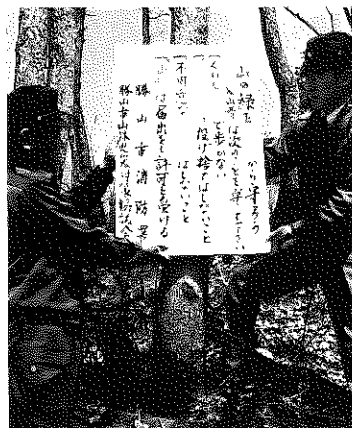 山の緑を から守ろう
入山者は次のことを守って下さい
くわえ で歩かない
投げ捨てはしないこと
はしないこと
は届出をし許可を受ける
勝山市消防署
勝山市山林火災対策協議会